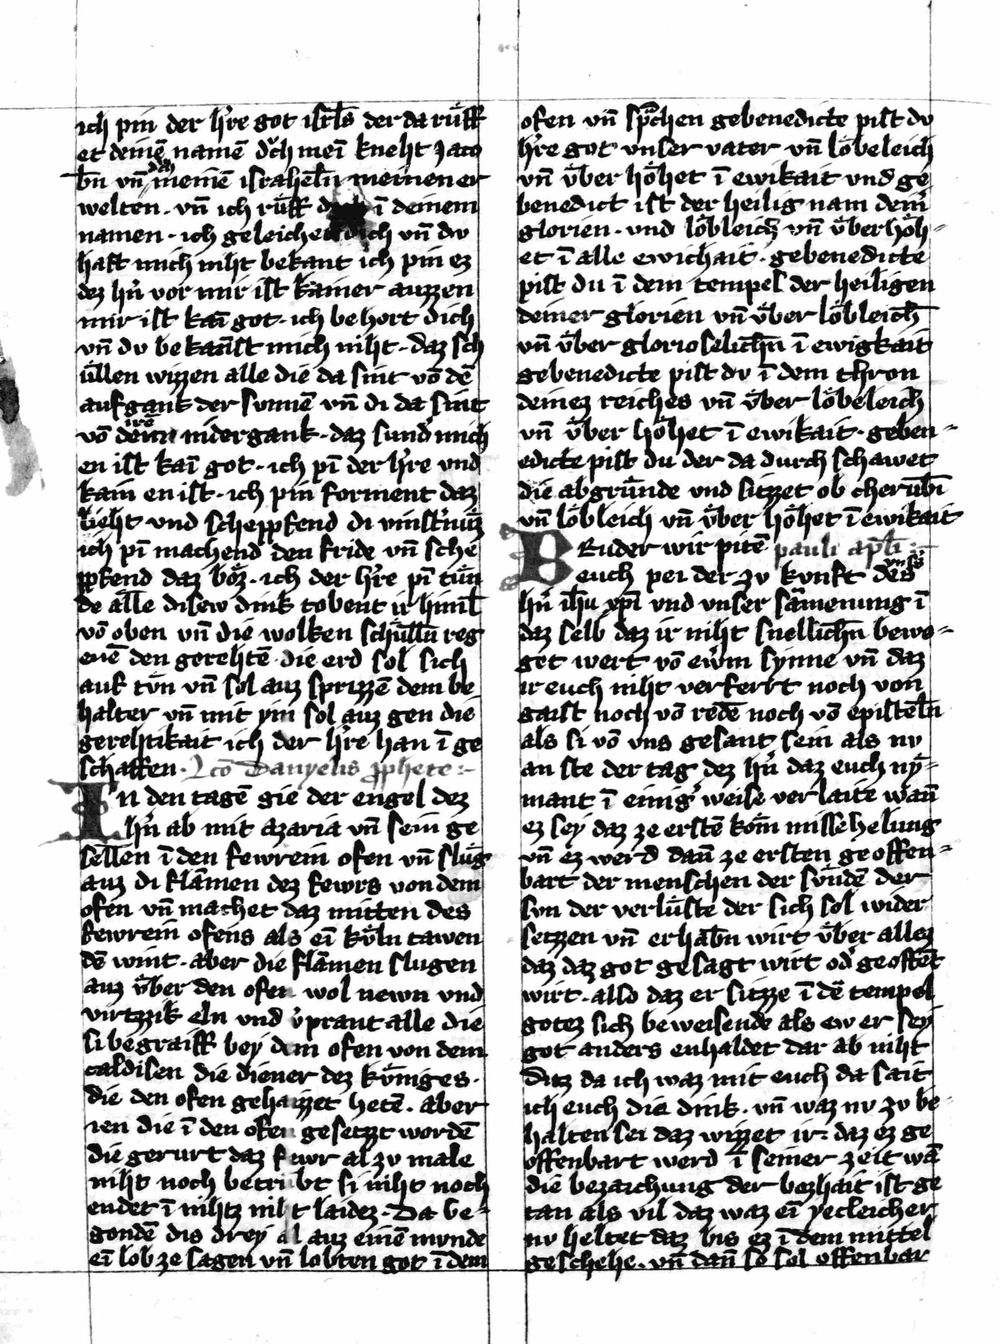 ich pin der hr̄e got isrls̄ der da rüff
et deinē namē dͮch meī kneht Jaco
bn̄ vn̄ meinē israheln̄ meinen er
welten · vn̄ ich rüff dich ī deinem
namen · ich geleichet dich vn̄ du
hast mich niht bekant ich pin ez
dez hn̄ vor mir ist kainer auzzen
mir ist kaī got · ich behort dich
vn̄ du bekanst mich niht · daz sch
üllen wizzen alle die da sint vō dē
aufgank der sunnē vn̄ di da sint
vō irē nidergank · daz sund' mich
en ist kaī got · ich pī der hr̄e vnd
kain en ist · ich pin forment daz
lieht vnd scheppfend di vinst'nüz
ich pī machend den fride vn̄ sche
ppfend daz böz · ich der hr̄e pī tün
de alle disew dink tobent ir himl̄
vō oben vn̄ die wolken schülln̄ reg
enē den gerehtē · die erd sol sich
auf tün vn̄ sol auz sprizzē dem be
halter vn̄ mit ym sol auz gen die
gerehtikait ich der hr̄e han ī ge
schaffen · Lcō Danyelis pphete :-
In den tagē gie der engel dez
hn̄ ab mit azaria vn̄ sein ge
sellen ī den fewrein ofen vn̄ slug
auz di flāmen dez fewrs von dem
ofen vn̄ machet daz mitten des
fewrein ofens als eī küln tawen
dē wint · aber die flāmen slugen
auz über den ofen wol newn vnd
virtzzik eln vnd v'prant alle die
si begraiff bey dem ofen von dem
caldisen die diener dez küniges ·
die den ofen gehaizzet hetē · aber
ien die ī den ofen gesetzt wordē
die gerurt daz fewr alzu male
niht noch betrübt si niht noch
endet ī nihtz niht laidez · Da be-
gondē dis drey al auz einē munde
eī lob ze sagen vn̄ lobten got ī dem
ofen vn̄ sprchen gebenedicte pist du
hr̄e got vnser vater vn̄ löbeleich
vn̄ über höhet ī ewikait vnd ge
benedict ist der heilig nam dein'
glorien · vnd löbleich vn̄ überhöh-
et ī alle ewichait · gebenedicte
pist du ī dem tempel der heiligen
deiner glorien vn̄ über löbleich
vn̄ über glorioselichn̄ ī ewigkait
gebenedicte pist du ī dem thron
deinez reiches vn̄ über löbeleich
vn̄ über höhet ī ewikait · geben-
edicte pist du der da durch schawet
die abgründe vnd sitzzet ob cherubī
vn̄ löbleich vn̄ über höhet ī ewikait
Bruder wir pitē pauli apl̄i :-
euch pei der zu kunft des vnsers
hn̄ ihū xpī vnd vnser sāmenung ī
daz selb daz ir niht snellichn̄ bewo-
get wert vō ewm synne vn̄ daz
ir euch niht verferrt noch von
gaist noch vō redē noch vō episteln̄
als si vō vns gesant sein als ny
an ste der tag dez hn̄ daz euch ny-
mant ī einig' weise verlaite wan̄
ez sey daz ze erstē kom missehelung
vn̄ ez werd dan̄ ze ersten geoffen-
bart der menschen der sündē der
sun der verlüste der sich sol wider
setzzen vn̄ erhabn̄ wirt über allez
daz daz got gesagt wirt od' geoffent
wirt · also daz er sitzze ī dē tempel
gotez sich beweisende als ew er sey
got anders enhaldet dar ab niht
Daz da ich waz mit euch da sait
ich euch die dink · vn̄ waz nu zu be-
halten sei daz wizzet ir : daz ez ge
offenbart werd ī seiner zeit wā
die bezaichung der bozhait ist ge
tan als vil daz waz eī yecleicher
nu heltet daz bis ez ī dem mittel
geschehe · vn̄ dan̄ so sol offenbar